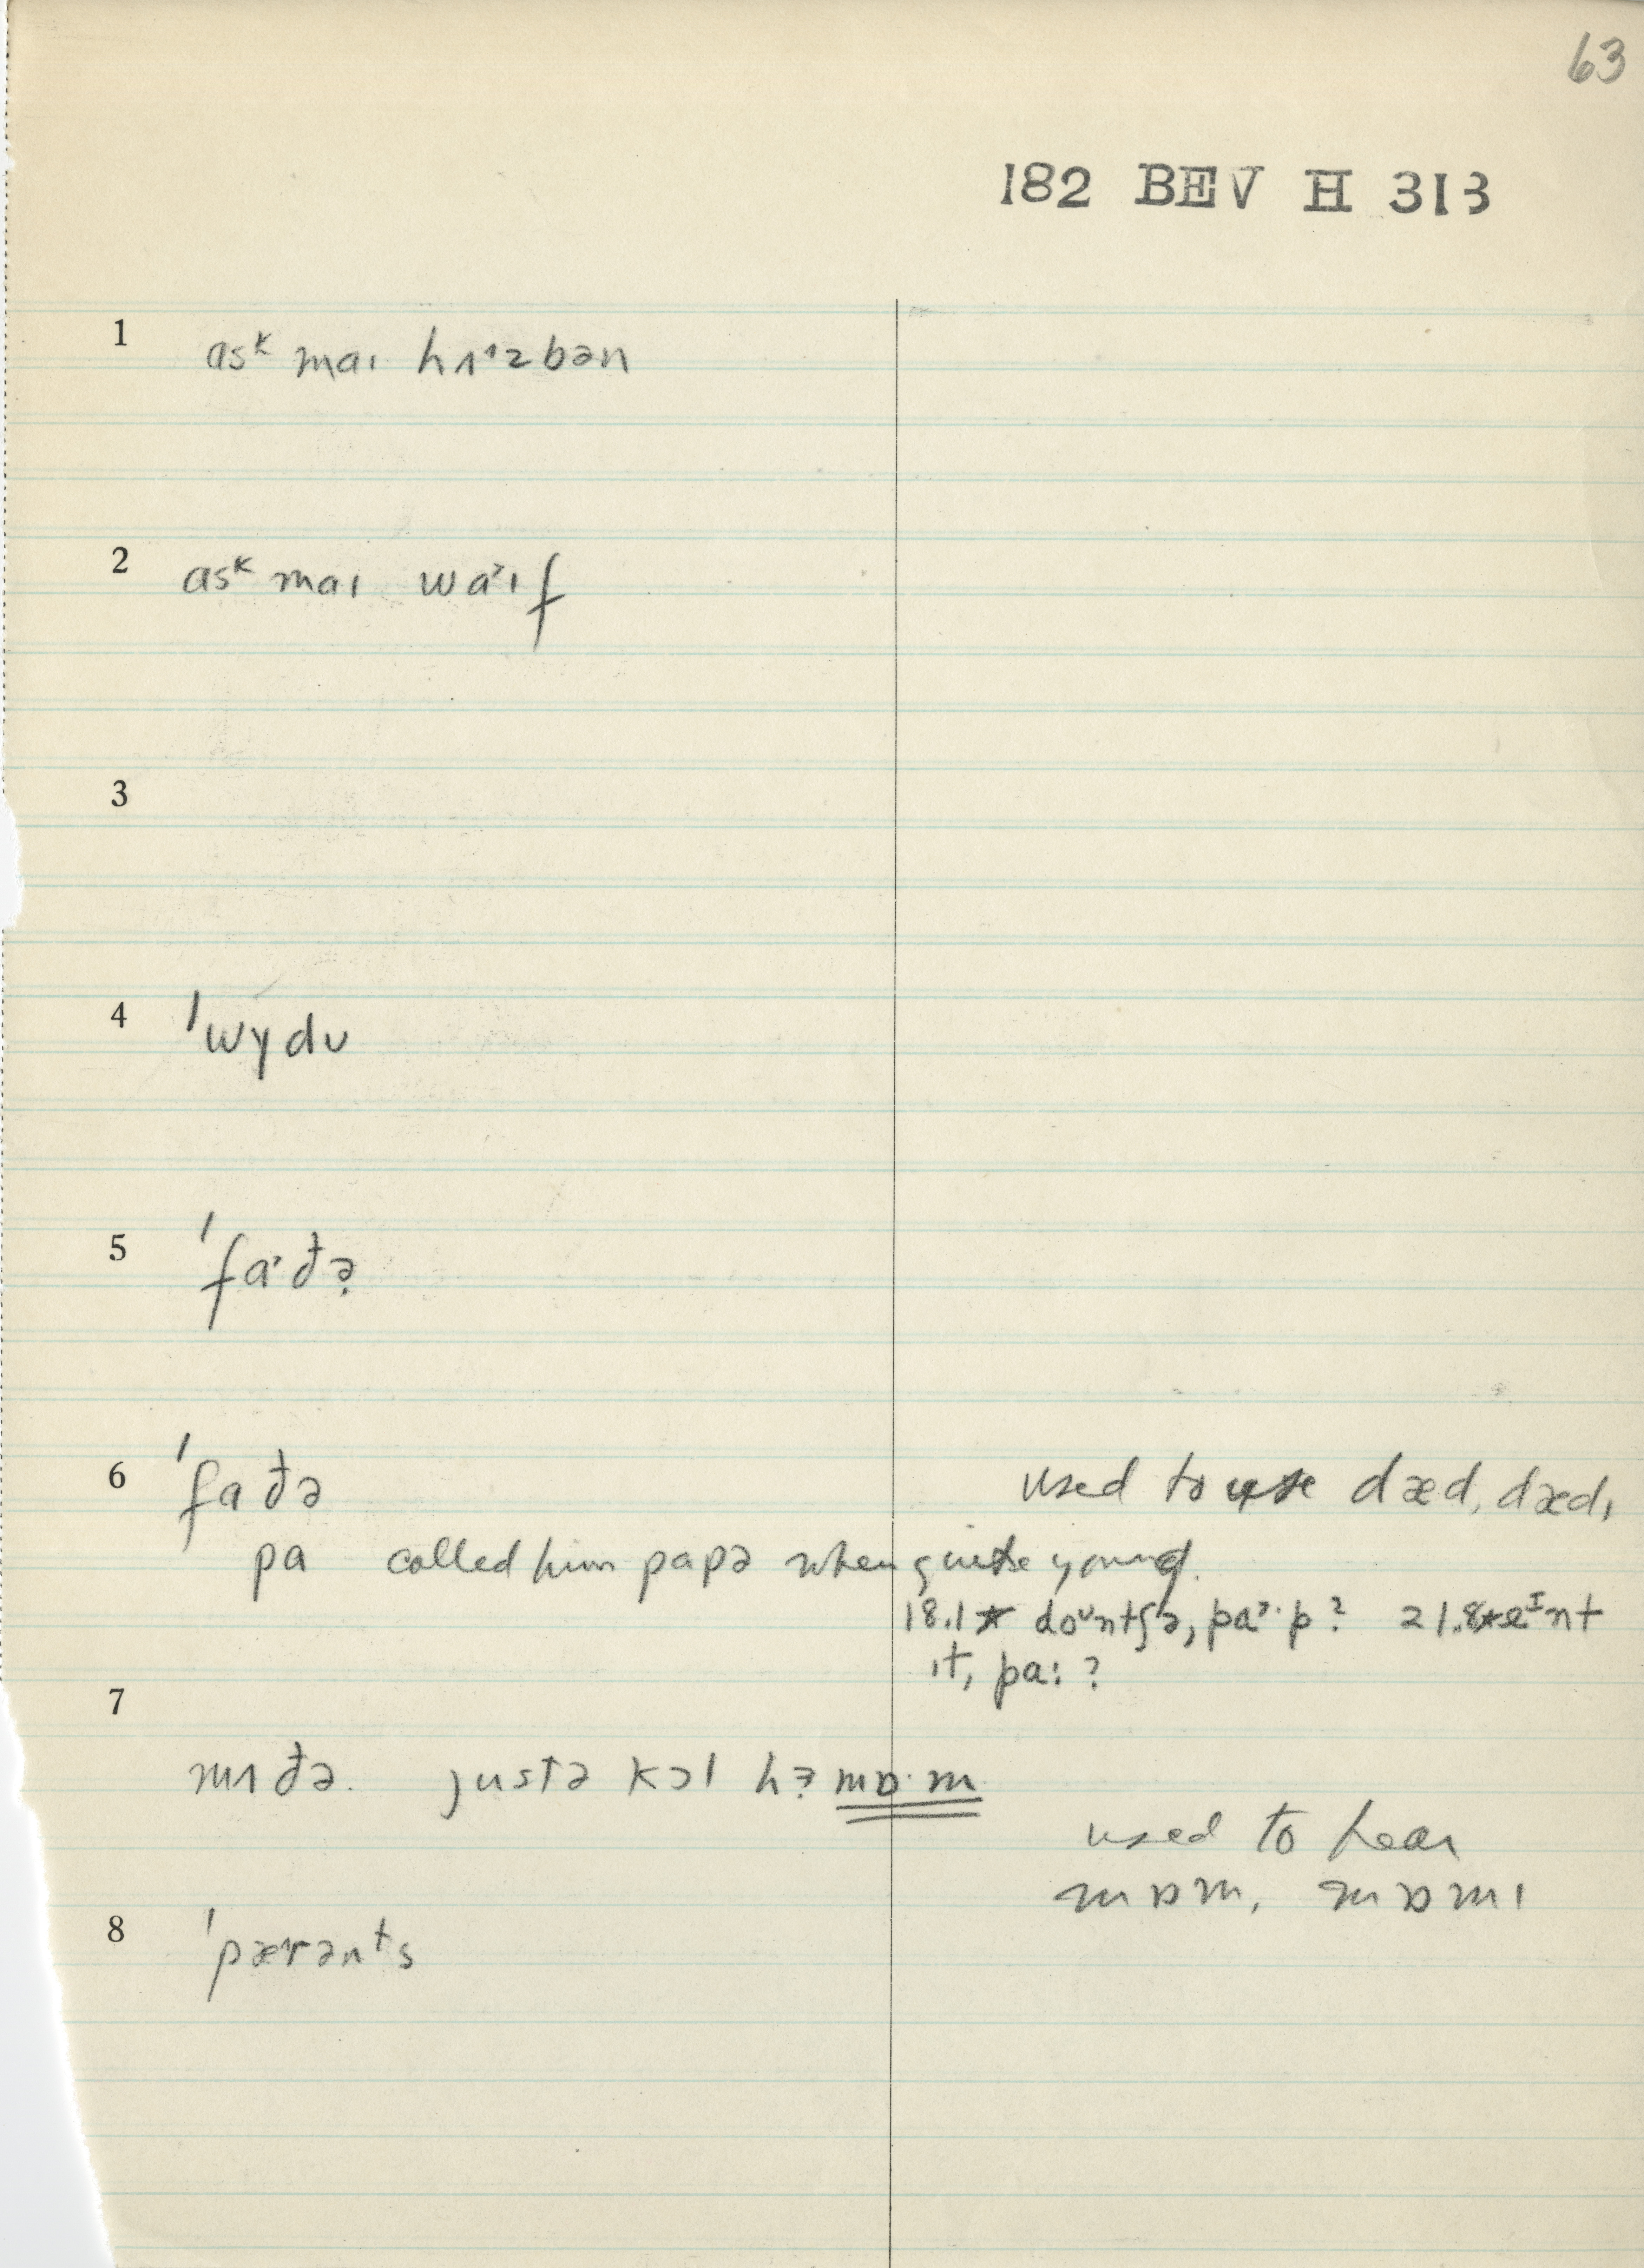 63
182 BEV H 313
1 asᵏ maɪ hʌ˄zbən
2 asᵏ maɪ wa˃ɪf
3
4 ˈwɣdʊ
5 ˈfa˒ðə̣
6 ˈfaðə used to use dæd, dædɪ
pa called him papə when quite young.
18.1* doᶷntʃə, pa˃·p? 21.8* eᴵnt
ɪt, pa:?
7
mʌðə. justə kɔl hɜ mɒ·m
used to hear
mɒm, mɒmɪ
8 ˈpærənᵗs